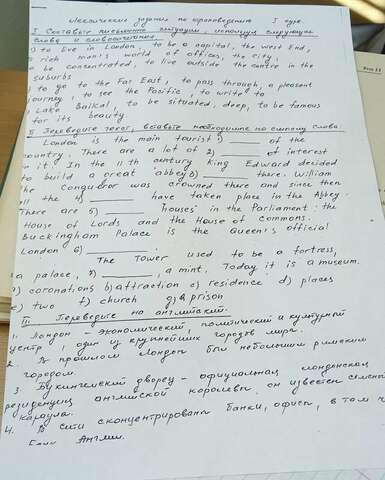 Лексические задания по страноведению I курс
I. Составьте письменно ситуации, используя следующие
слова и словосочетания.
1) to live in London, to be a capital, the West End,
rich man's world of offices, the city,
concentrated, to live outside the centre in the
suburbs
2) to go to the Far East, to pass through, a pleasant
journey, to see the Pacific, to write to
Lake Baikal, to be situated, deep, to be famous
for its beauty
II. Переведите текст, вставьте необходимые по смыслу слова.
London is the main tourist 1) ______ of the
country. There are a lot of 2) ______ of interest
in it. In the 11th century King Edward decided
to build a great abbey 3) ______ there. William
the Conqueror was crowned there and since then
all the 4) ______ have taken place in the Abbey.
There are 5) ______ "houses" in the Parliament: the
House of Lords and the House of Commons.
Buckingham Palace is the Queen's official
London 6) ______.
The Tower used to be a fortress,
a palace, 7) ______, a mint. Today it is a museum.
a) coronations b) attraction c) residence d) places
e) two f) church g) a prison
III. Переведите на английский.
1. Лондон - экономический, политический и культурный
центр, один из крупнейших городов мира.
2. В прошлом Лондон был небольшим римским
городом.
3. Букингемский дворец - официальная лондонская
резиденция английской королевы, он известен сменой
караула.
4. В сити сконцентрированы банки, офисы, в том ч
Банк Англии.